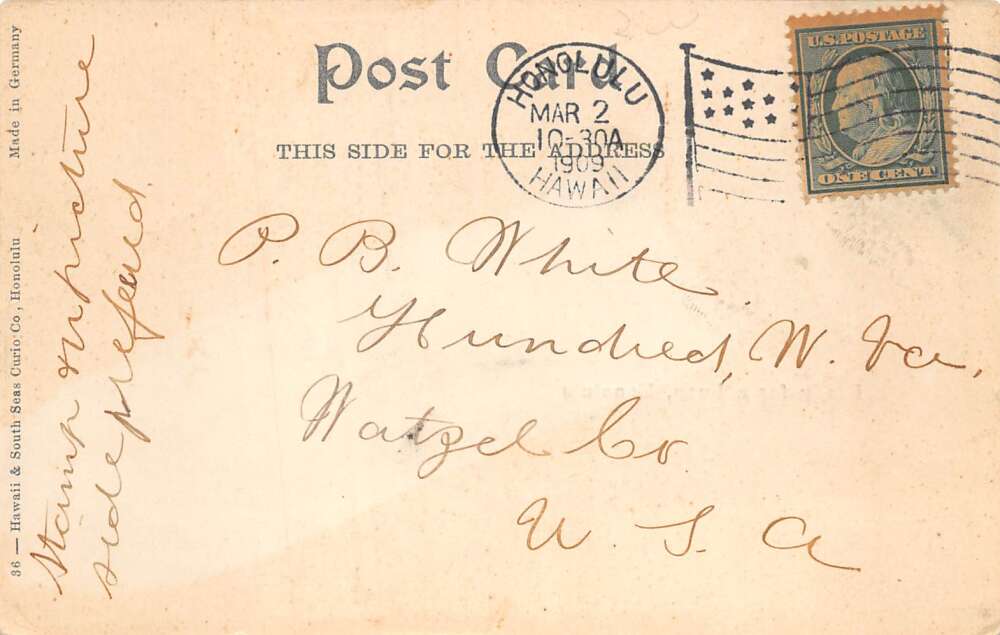 Post Card
THIS SIDE FOR THE ADDRESS
HONOLULU
MAR 2
10-30A
1909
HAWAII
U.S. POSTAGE
ONE CENT
P. B. White
Hundred, W. Va,
Watzel Co.
U. S. A
Stamp on picture
side prefered
36 — Hawaii & South Seas Curio Co., Honolulu
Made in Germany